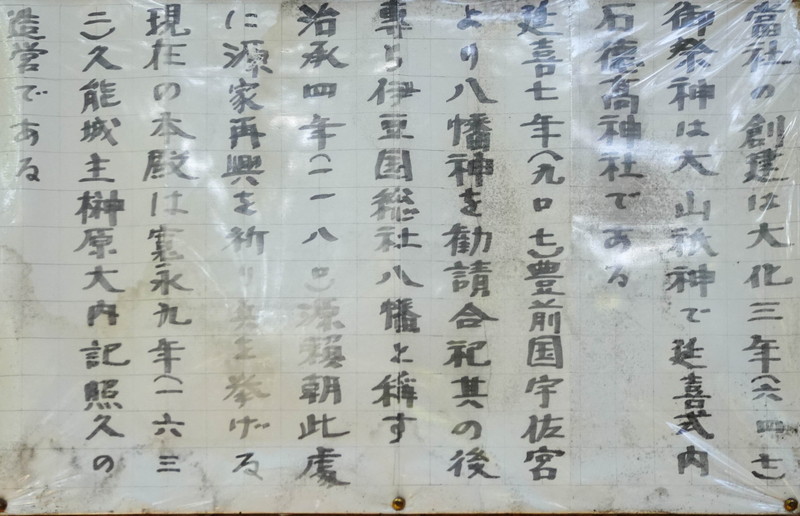 當社の創建は大化三年(六四七)
御祭神は大山祇神で延喜式内
石徳高神社である
延喜七年(九口七)豊前国宇佐宮
より八幡神を勧請合祀其の後
専ら伊豆国総社八幡と称す
治承四年(一一八〇)源頼朝此處
に源家再興を祈り兵を挙げる
現在の本殿は寛永九年(一六三
二)久能城主榊原大内記照久の
造営である